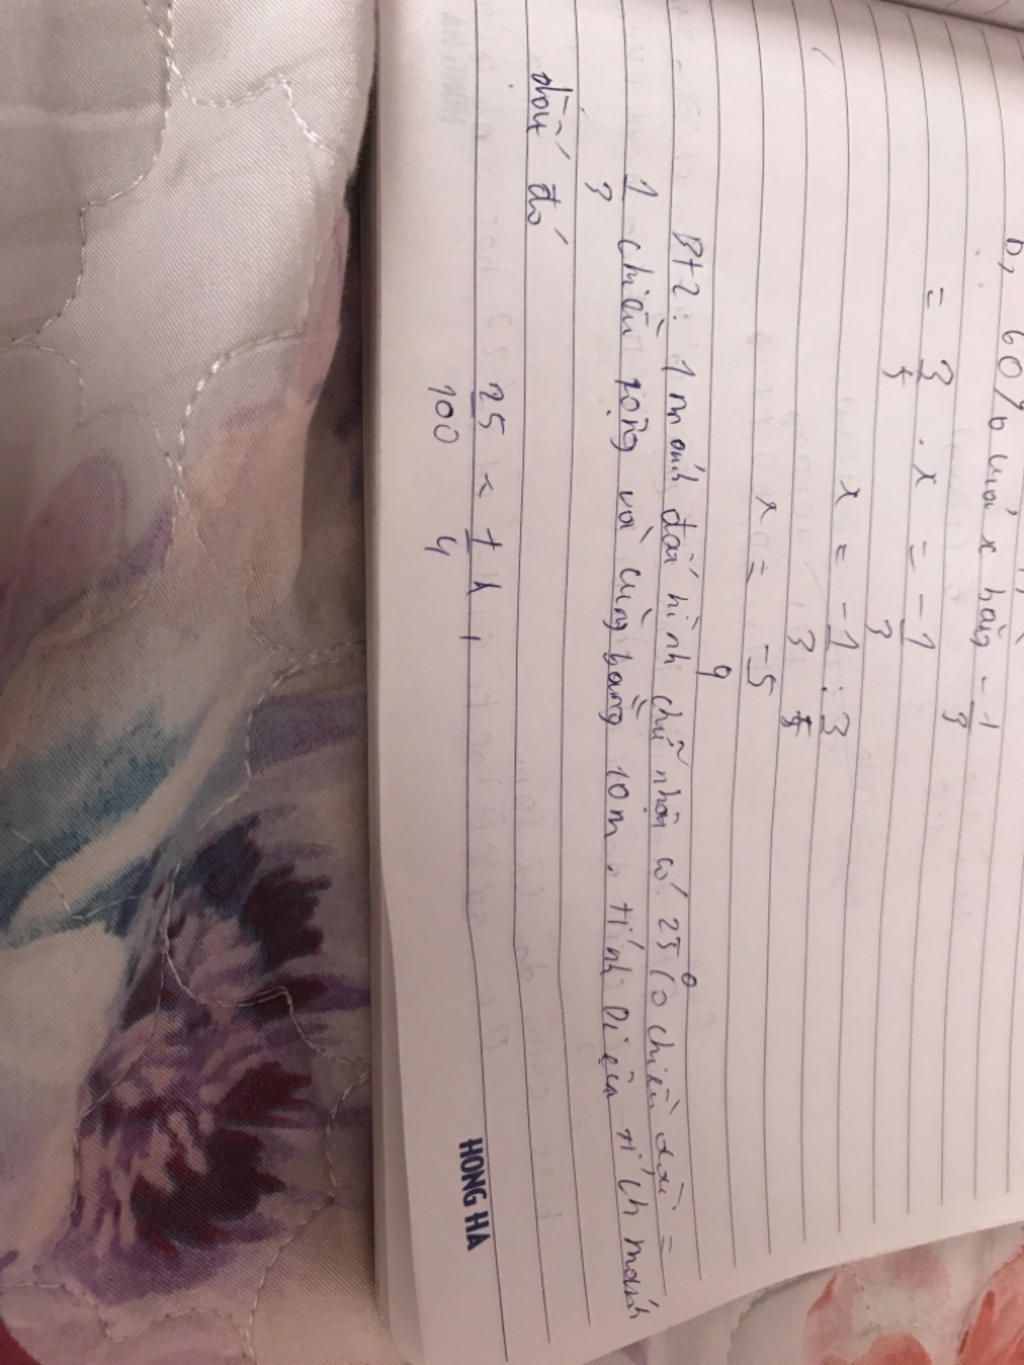 b, 60% của x bằng -1/3
= 3/5 . x = -1/3
x = -1/3 : 3/5
x = -5/9
Bt2: 1 mảnh đất hình chữ nhật có 25% chiều dài =
1/3 chiều rộng và cùng bằng 10m, tính diện tích mảnh
đất đó
25/100 = 1/4
HONG HA